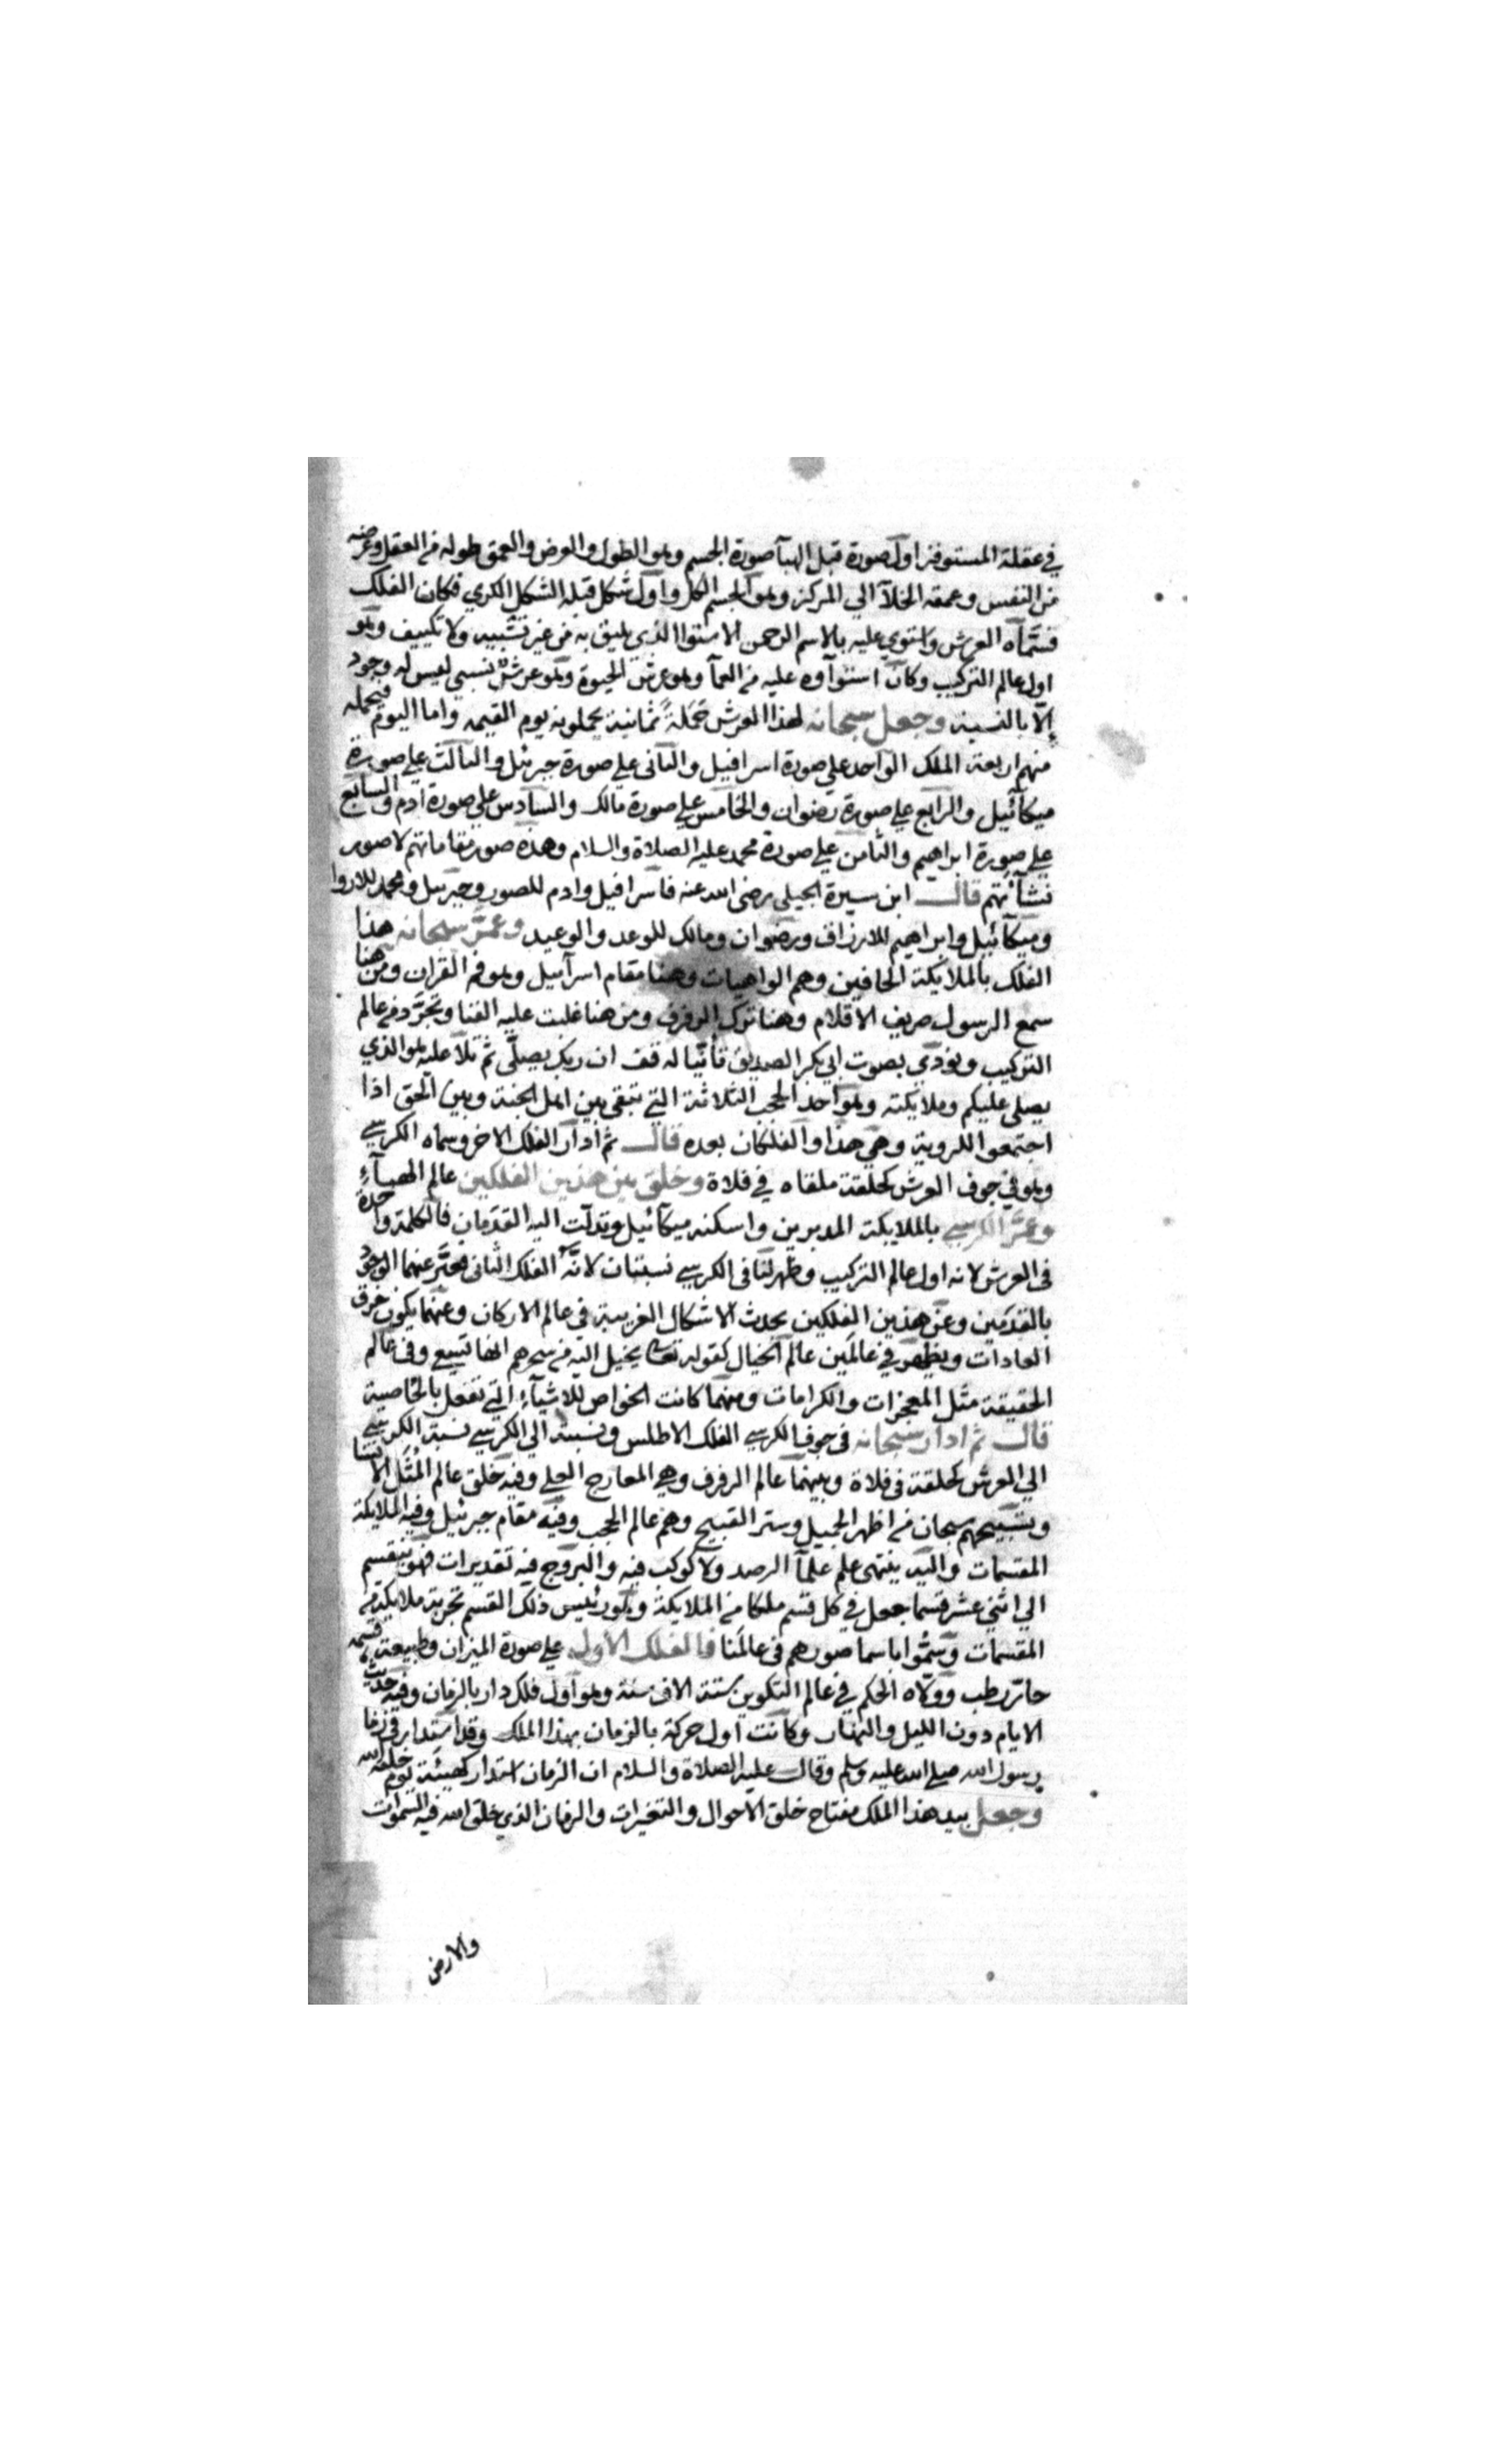 في عقلة المستوفز اول صورة قبل الهبآ صورة الجسم وهو الطول والعرض والعمق طوله من العقل وعرضه
من النفس وعمقه الخلآ الي المركز وهو الجسم الكل واول شكل قبله الشكل الكري فكان الفلك
فسمآه العرش واستوي عليه بالاسم الرحمن الاستوا الذي يليق به من غير تشبيه ولا تكييف وهو
اول عالم التركيب وكان استوآوه عليه من العمآ وهو عرش الحيوة وهو عرش نسبي ليس له وجود
إلا بالنسبة وجعل سبحانه لهذا العرش حَمَلةً ثمانية يحملونه يوم القيمه واما اليوم فيحمله
منهم اربعة الملك الواحد علي صورة اسرافيل والثاني علي صورة جبرئيل والثالث علي صورة
ميكآئيل والرابع علي صورة رضوان والخامس علي صورة مالك والسادس علي صورة ادم والسابع
علي صورة ابراهيم والثامن علي صورة محمد عليه الصلاة والسلام وهذه صور مقاماتهم لا صور
نشأتهم قال ابن سيرة الجيلي رضي الله عنه فاسرافيل وادم للصور وجبريل ومحمد للاروا
وميكآئيل وابراهيم للارزاق ورضوان ومالك للوعد والوعيد وعمّر سبحانه هذا
الفلك بالملايكة الحافين وهم الواهبات وهنا مقام اسرآفيل وهو فم القران ومن هنا
سمع الرسول صريف الاقلام وهنا ترك الرفرف ومن هنا غلبت عليه الفنا وتجرّد من عالم
التركيب ونودي بصوت ابي بكر الصديق تأنّيا له قف ان ربك يصلّي ثم تلا عليه هو الذي
يصلي عليكم وملايكته وهو احد الحجب الثلاثة التي تبقي بين اهل الجنة وبين الحق اذا
اجتمعوا للروية وهي هذا والفلكان بعده قال ثم أدار الفلك الاخر وسماه الكرسي
وهو في جوف العرش كحلقة ملقاه في فلاة وخلق بين هذين الفلكين عالم الهبآء
وعمّر الكرسي بالملايكة المدبرين واسكنه ميكآئيل وتدلّت اليه القدمان فالكلمة واحدة
في العرش لانه اول عالم التركيب وظهر لنا في الكرسي نسبتان لانّه الفلك الثاني فعبّر عنهما الوجود
بالقدمين وعن هذين الفلكين يحدث الاشكال الغريبة في عالم الاركان وعنهما يكون خرق
العادات ويظهر في عالمَين عالم الخيال كقوله تعالي يخيل اليه من سحرهم انها تسعي وفي عالم
الحقيقة مثل المعجزات والكرامات ومنهما كانت الخواص للاشيآء التي تفعل بالخاصية
قال ثم ادار سبحانه في جوف الكرسي الفلك الاطلس ونسبة الي الكرسي نسبة الكرسي
الي العرش كحلقة في فلاة وبينهما عالم الرفرف وهي المعارج العلي وفيه خلق عالم المُثُل الانسا
وتسبيحهم سبحان من اظهر الجميل وستر القبيح وهم عالم الحجب وفيه مقام جبرئيل وفيه الملايكة
المقسمات واليه ينتهي علم علمآ الرصد ولا كوكب فيه والبروج فيه تقديرات فهو ينقسم
الي اثني عشر قسما جعل في كل قسم ملكا من الملايكة وهو رئيس ذلك القسم تحت يده ملايكة من
المقسمات وسمّوا باسما صورهم في عالمنا فالفلك الأول علي صورة الميزان وطبيعة قسمه
حارّ رطب وولّاه الحكم في عالم التكوين ستة الاف سنة وهو اول فلك دار بالزمان وفيه حدثت
الايام دون الليل والنهار وكانت اول حركة بالزمان بهذا الملك وقد استدار في زما
رسول الله صلي الله عليه وسلم وقال عليه الصلاة والسلام ان الزمان استدار كهيئته يوم خلقه الله
وجعل بيد هذا الملك مفتاح خلق الاحوال والتغيرات والزمان الذي خلق الله فيه السموات
والارض